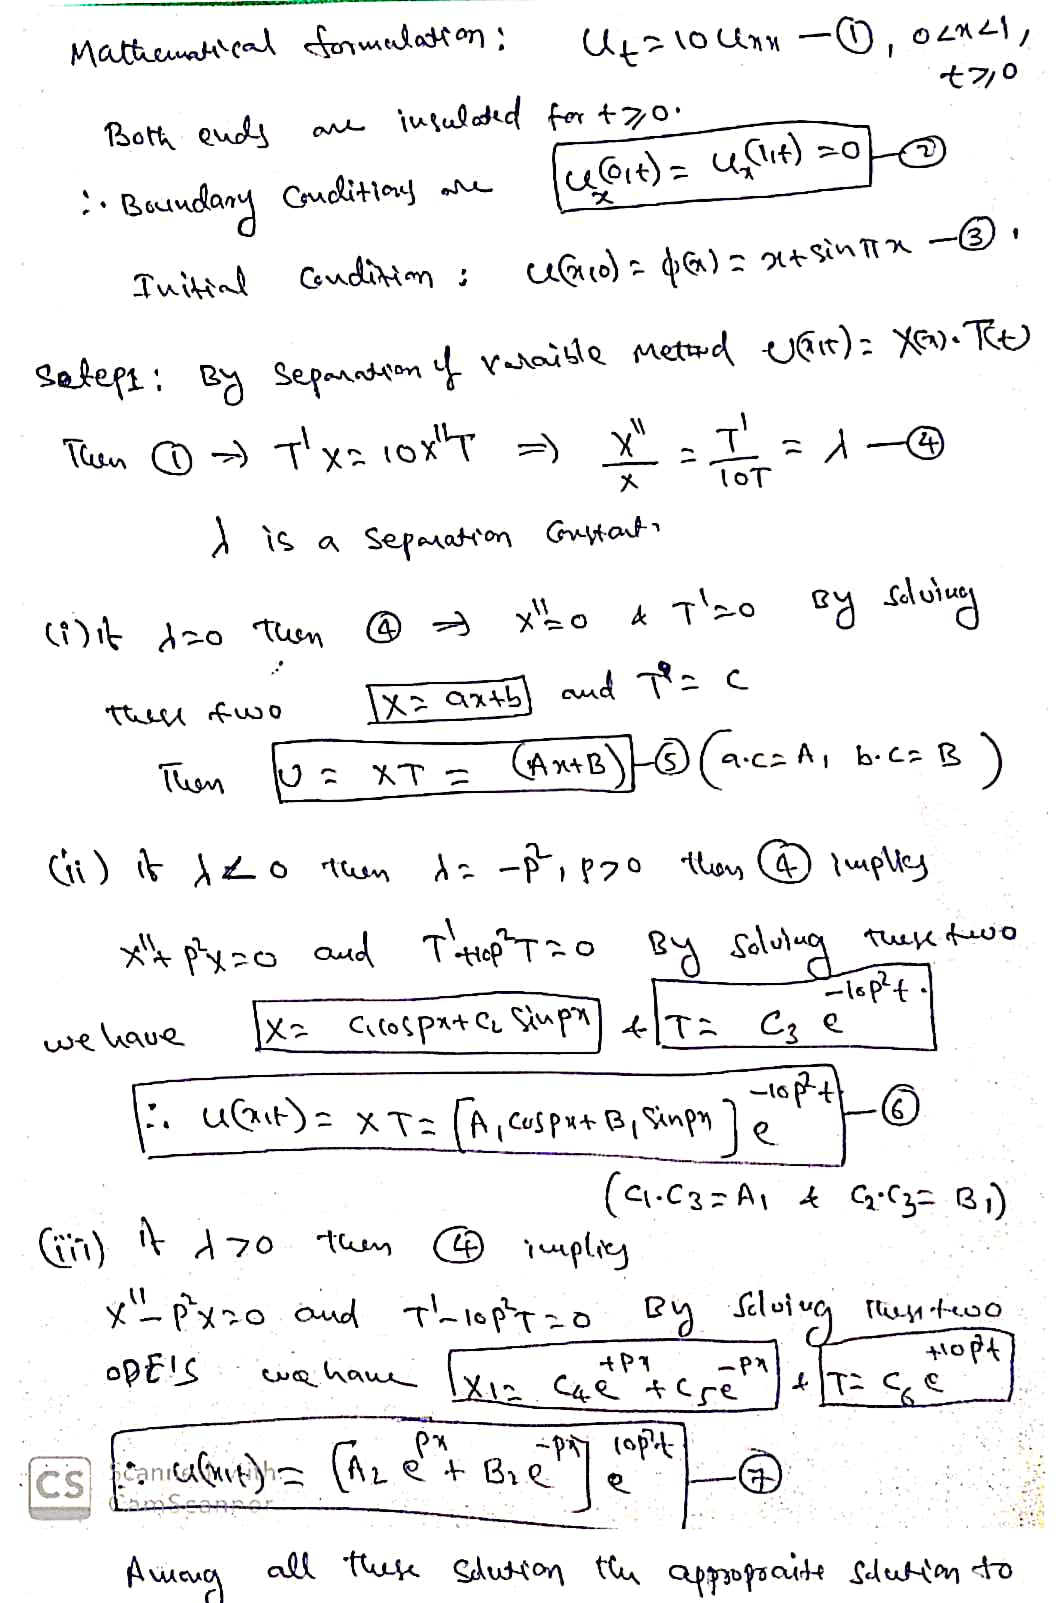 Mathematical formulation: Ut = 10 Uxx —①, 0<x<1,
t≥0
Both ends are insulated for t≥0.
∴ Boundary Conditions are Ux(0,t) = Ux(1,t) = 0 —②
Initial Condition : u(x,0) = φ(x) = x+sinπx —③.
Satep1: By Separation of varaible Metord U(x,t) = X(x).T(t)
Then ① ⇒ T'X = 10X''T ⇒ X''/X = T'/10T = λ —④
λ is a Separation Constant.
(i) if λ=0 then ④ ⇒ X''=0 & T'=0 By solving
these two X = ax+b and T = c
Then U = XT = (Ax+B) —⑤ (a.c = A, b.c = B)
(ii) if λ<0 then λ = -p², p>0 then ④ implies
X''+p²X=0 and T'+10p²T=0 By Solving these two
we have X = C1cospx+C2 Sinpx & T = C3 e^{-10p²t}.
∴ u(x,t) = XT = [A1cospx+B1Sinpx] e^{-10p²t} —⑥
(C1.C3=A1 & C2.C3=B1)
(iii) if λ>0 then ④ implies
X''-p²X=0 and T'-10p²T=0 By Solving these two
ODE'S we have X1 = C4e^{+px}+C5e^{-px} & T = C6 e^{+10p²t}
∴ u(x,t) = [A2 e^{px}+B2e^{-px}] e^{10p²t} —⑦
CS Scanned with
CamScanner
Among all these Solution the appropraite Solution to